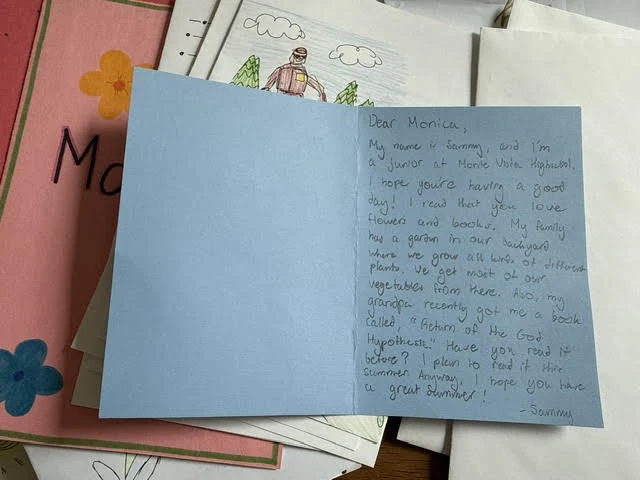 Mo
Dear Monica,
My name is Sammy, and I'm
a junior at Monte Vista Highschool.
I hope you're having a good
day! I read that you love
flowers and books. My family
has a garden in our backyard
where we grow all kinds of different
plants. We get most of our
vegetables from there. Also, my
grandpa recently got me a book
called, "Return of the God
Hypothesis." Have you read it
before? I plan to read it this
summer. Anyway, I hope you have
a great summer!
- Sammy